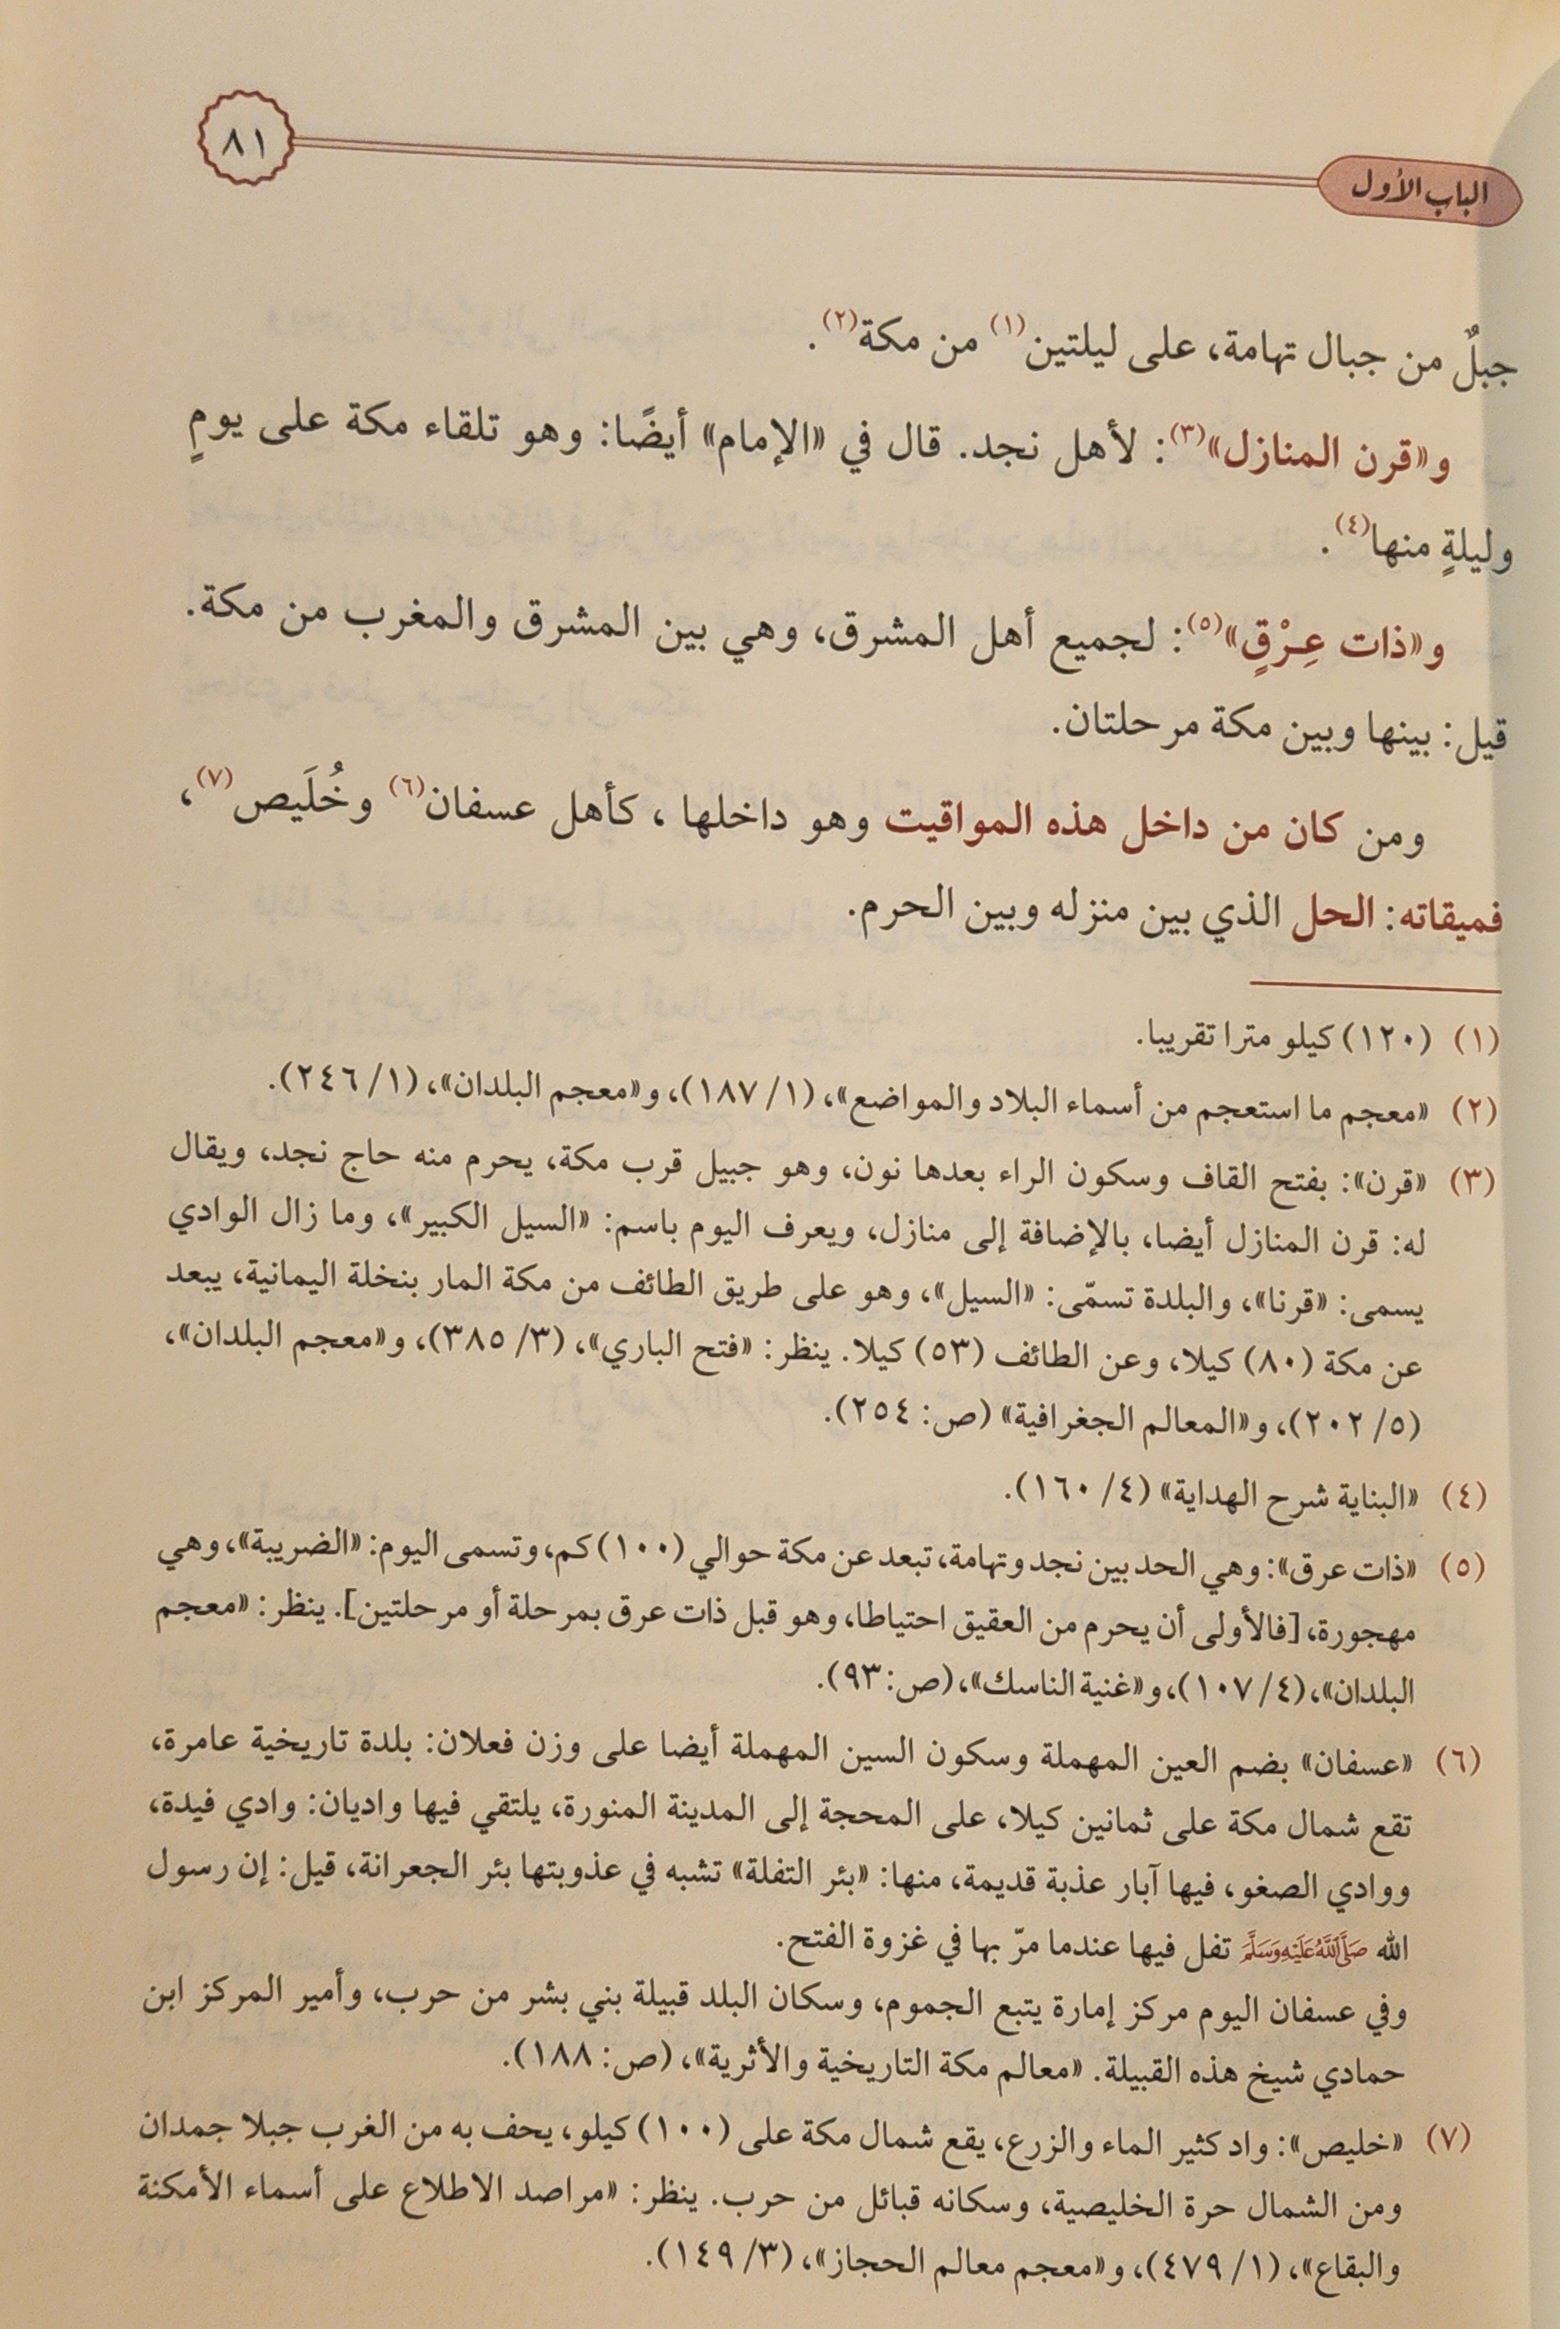 ٨١
الباب الأول
جبلٌ من جبال تهامة، على ليلتين(١) من مكة(٢).
و«قرن المنازل»(٣): لأهل نجد. قال في «الإمام» أيضًا: وهو تلقاء مكة على يومٍ
وليلةٍ منها(٤).
و«ذات عِرْقٍ»(٥): لجميع أهل المشرق، وهي بين المشرق والمغرب من مكة.
قيل: بينها وبين مكة مرحلتان.
ومن كان من داخل هذه المواقيت وهو داخلها ، كأهل عسفان(٦) وخُلَيص(٧)،
فميقاته: الحل الذي بين منزله وبين الحرم.
(١) (١٢٠) كيلو مترا تقريبا.
(٢) «معجم ما استعجم من أسماء البلاد والمواضع»، (١/ ١٨٧)، و«معجم البلدان»، (١/ ٢٤٦).
(٣) «قرن»: بفتح القاف وسكون الراء بعدها نون، وهو جبيل قرب مكة، يحرم منه حاج نجد، ويقال
له: قرن المنازل أيضا، بالإضافة إلى منازل، ويعرف اليوم باسم: «السيل الكبير»، وما زال الوادي
يسمى: «قرنا»، والبلدة تسمّى: «السيل»، وهو على طريق الطائف من مكة المار بنخلة اليمانية، يبعد
عن مكة (٨٠) كيلا، وعن الطائف (٥٣) كيلا. ينظر: «فتح الباري»، (٣/ ٣٨٥)، و«معجم البلدان»،
(٥/ ٢٠٢)، و«المعالم الجغرافية» (ص: ٢٥٤).
(٤) «البناية شرح الهداية» (٤/ ١٦٠).
(٥) «ذات عرق»: وهي الحد بين نجد وتهامة، تبعد عن مكة حوالي (١٠٠) كم، وتسمى اليوم: «الضريبة»، وهي
مهجورة، [فالأولى أن يحرم من العقيق احتياطا، وهو قبل ذات عرق بمرحلة أو مرحلتين]. ينظر: «معجم
البلدان»، (٤/ ١٠٧)، و«غنية الناسك»، (ص: ٩٣).
(٦) «عسفان» بضم العين المهملة وسكون السين المهملة أيضا على وزن فعلان: بلدة تاريخية عامرة،
تقع شمال مكة على ثمانين كيلا، على المحجة إلى المدينة المنورة، يلتقي فيها واديان: وادي فيدة،
ووادي الصغو، فيها آبار عذبة قديمة، منها: «بئر التفلة» تشبه في عذوبتها بئر الجعرانة، قيل: إن رسول
الله صَلَّى اللَّهُ عَلَيْهِ وَسَلَّمَ تفل فيها عندما مرّ بها في غزوة الفتح.
وفي عسفان اليوم مركز إمارة يتبع الجموم، وسكان البلد قبيلة بني بشر من حرب، وأمير المركز ابن
حمادي شيخ هذه القبيلة. «معالم مكة التاريخية والأثرية»، (ص: ١٨٨).
(٧) «خليص»: واد كثير الماء والزرع، يقع شمال مكة على (١٠٠) كيلو، يحف به من الغرب جبلا جمدان
ومن الشمال حرة الخليصية، وسكانه قبائل من حرب. ينظر: «مراصد الاطلاع على أسماء الأمكنة
والبقاع»، (١/ ٤٧٩)، و«معجم معالم الحجاز»، (٣/ ١٤٩).